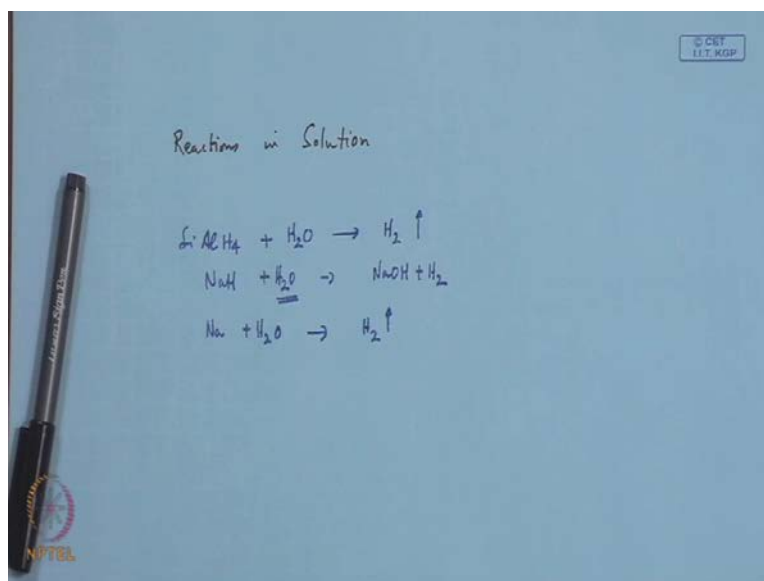 © CET
I.I.T. KGP
Reactions in Solution
LiAlH4 + H2O → H2 ↑
NaH + H2O → NaOH + H2
Na + H2O → H2 ↑
NPTEL